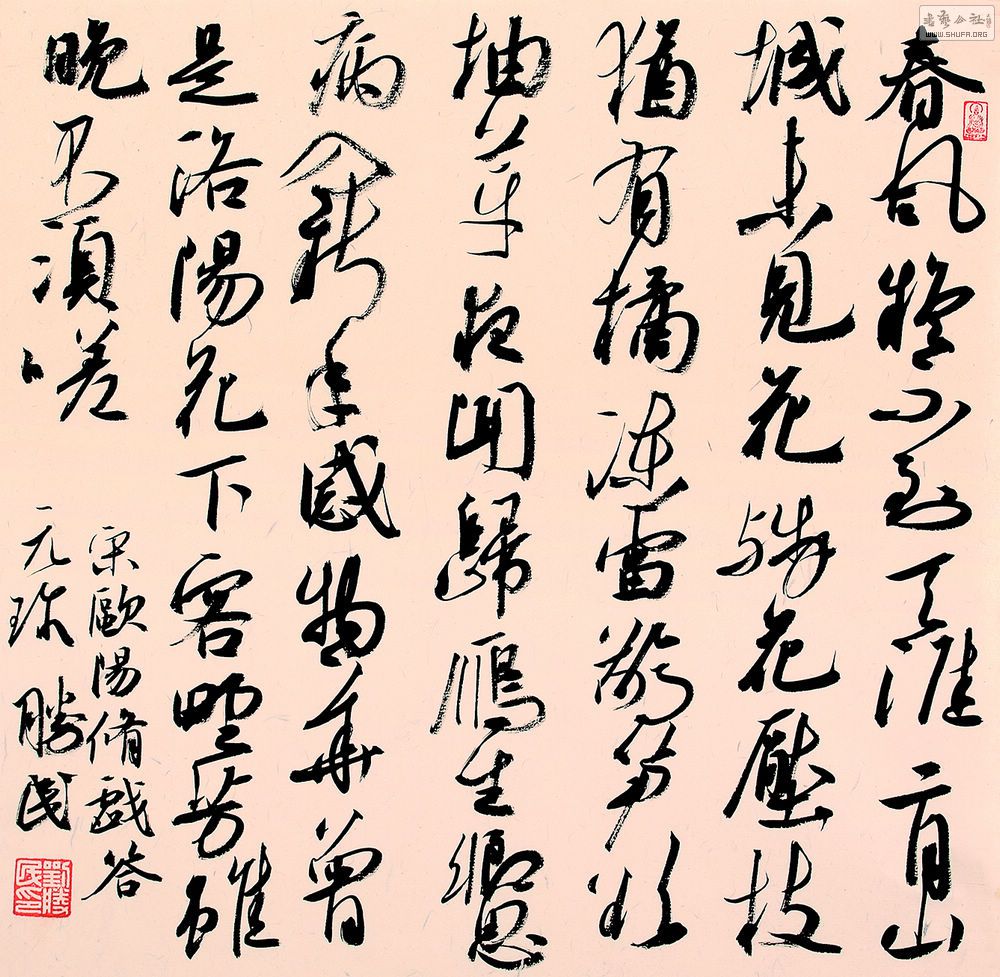 春风疑不到天涯二月山
城未見花残花壓枝
猶有橘凍雷驚笋欲
抽芽夜聞歸鴈生鄉思
病入新年感物華曾
是洛陽花下客野芳雖
晚不須嗟
宋歐陽脩戲答
元珍 勝民
劉勝民印
WWW.SHUFA.ORG